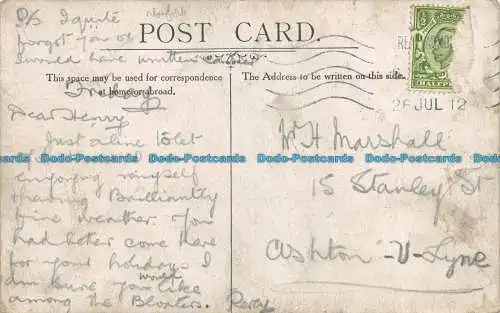 P/S I quite
forgot you or
I would have written
POST CARD.
This space may be used for correspondence
at home or abroad.
The Address to be written on this side.
HALFPENNY
26 JUL 12
Friday
Dear Henry
Just a line to let
enjoying myself
Brilliantly
fine weather. You
had better come here
for your holidays I
am sure you would like
among the Bloaters. Percy
Mr H Marshall
15 Stanley St
Ashton-U-Lyne
Dodo-Postcards Dodo-Postcards Dodo-Postcards Dodo-Postcards Dodo-Postcards